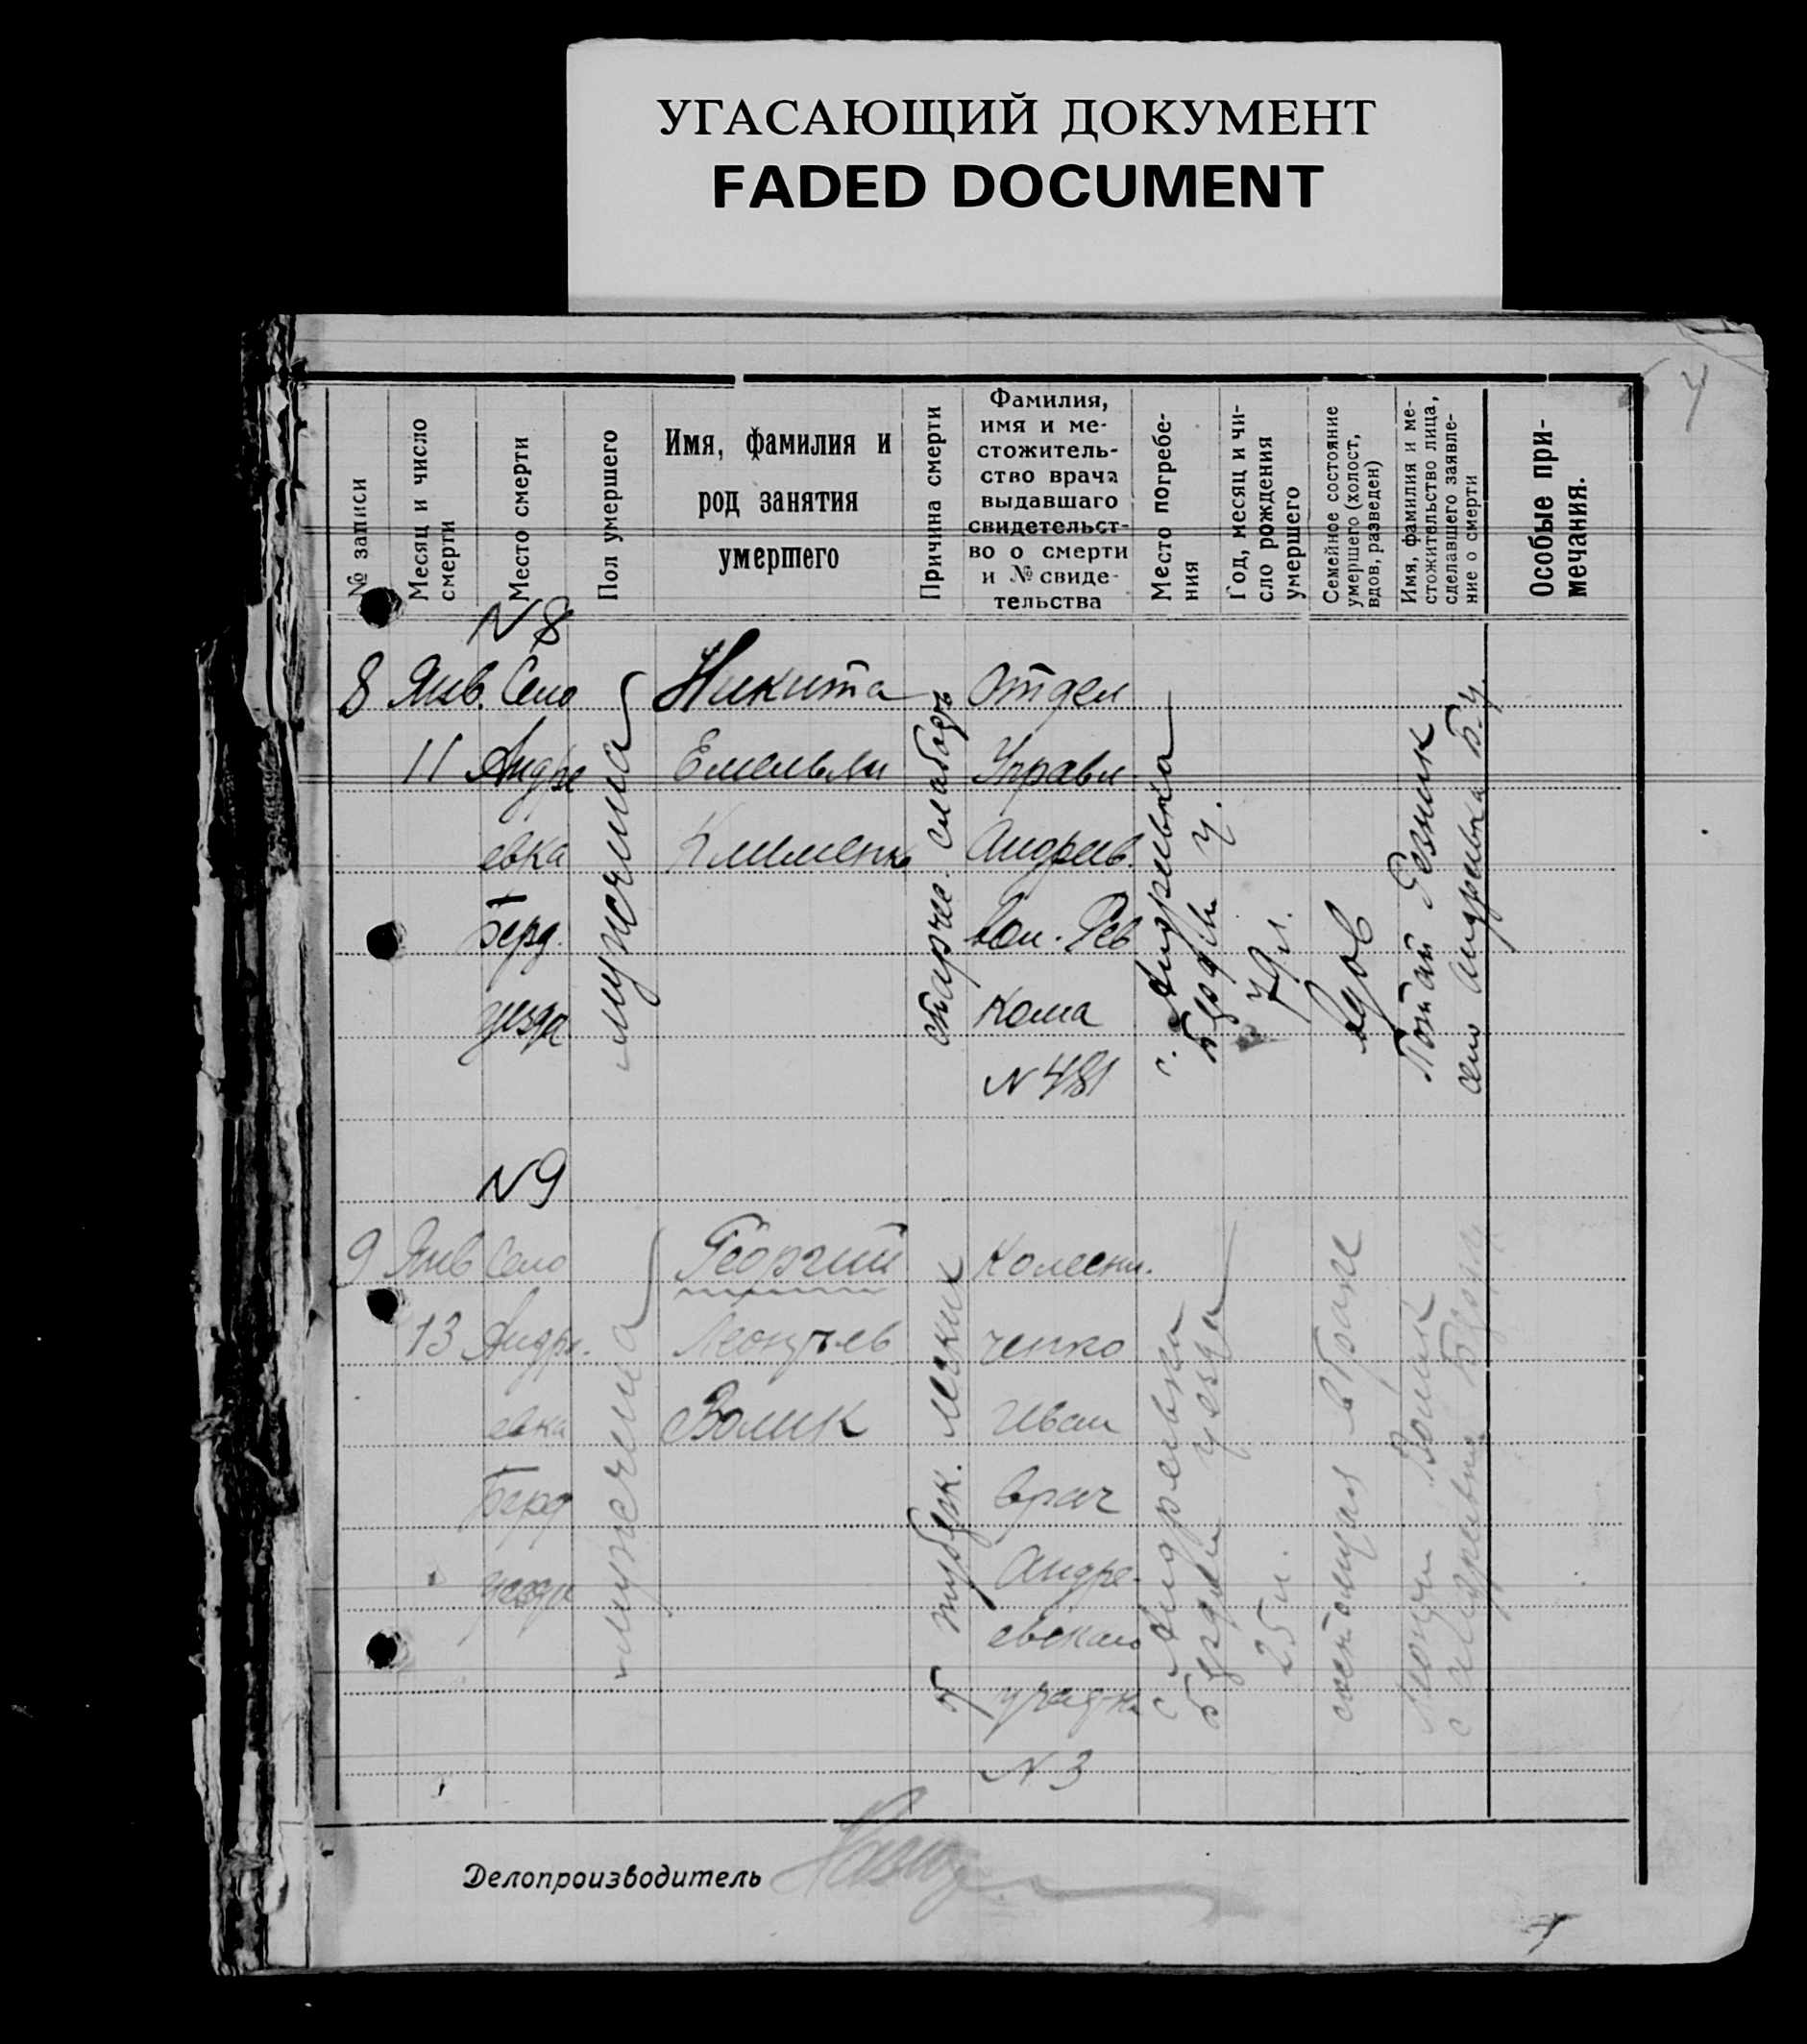 УГАСАЮЩИЙ ДОКУМЕНТ
FADED DOCUMENT
4
№ записи
Месяц и число
смерти
Место смерти
Пол умершего
Имя, фамилия и
род занятия
умершего
Причина смерти
Фамилия,
имя и ме-
стожитель-
ство врача
выдавшаго
свидетельст-
во о смерти
и № свиде-
тельства
Место погребе-
ния
Год, месяц и чи-
сло рождения
умершего
Семейное состояние
умершего (холост,
вдов, разведен)
Имя, фамилия и ме-
стожительство лица,
сделавшего заявле-
ние о смерти
Особые при-
мечания.
N 8
8
Янв.
11
Село
Андре
евка
Берд.
уезда
мужчина
Никита
Емельян
Клименко
старче. слабость
Отдел
Управл.
Андреев.
вол. Рев
кома
N 481
с. Андреевка
Бердян у.
79 л.
вдов
Потап Резник
село Андреевка Б.у.
N 9
9
Янв
13
Село
Андре.
евка
Берд
уезда
мужчина
Георгий
Леонтьев
Волик
от туберк. легких
Колесни.
ченко
Иван
врач
Андре-
евского
участка
N 3
с Андреевка
Бердян уезда
25 л.
состоящий в браке
Леонтий Волик
с Андреевка Бердян
Делопроизводитель